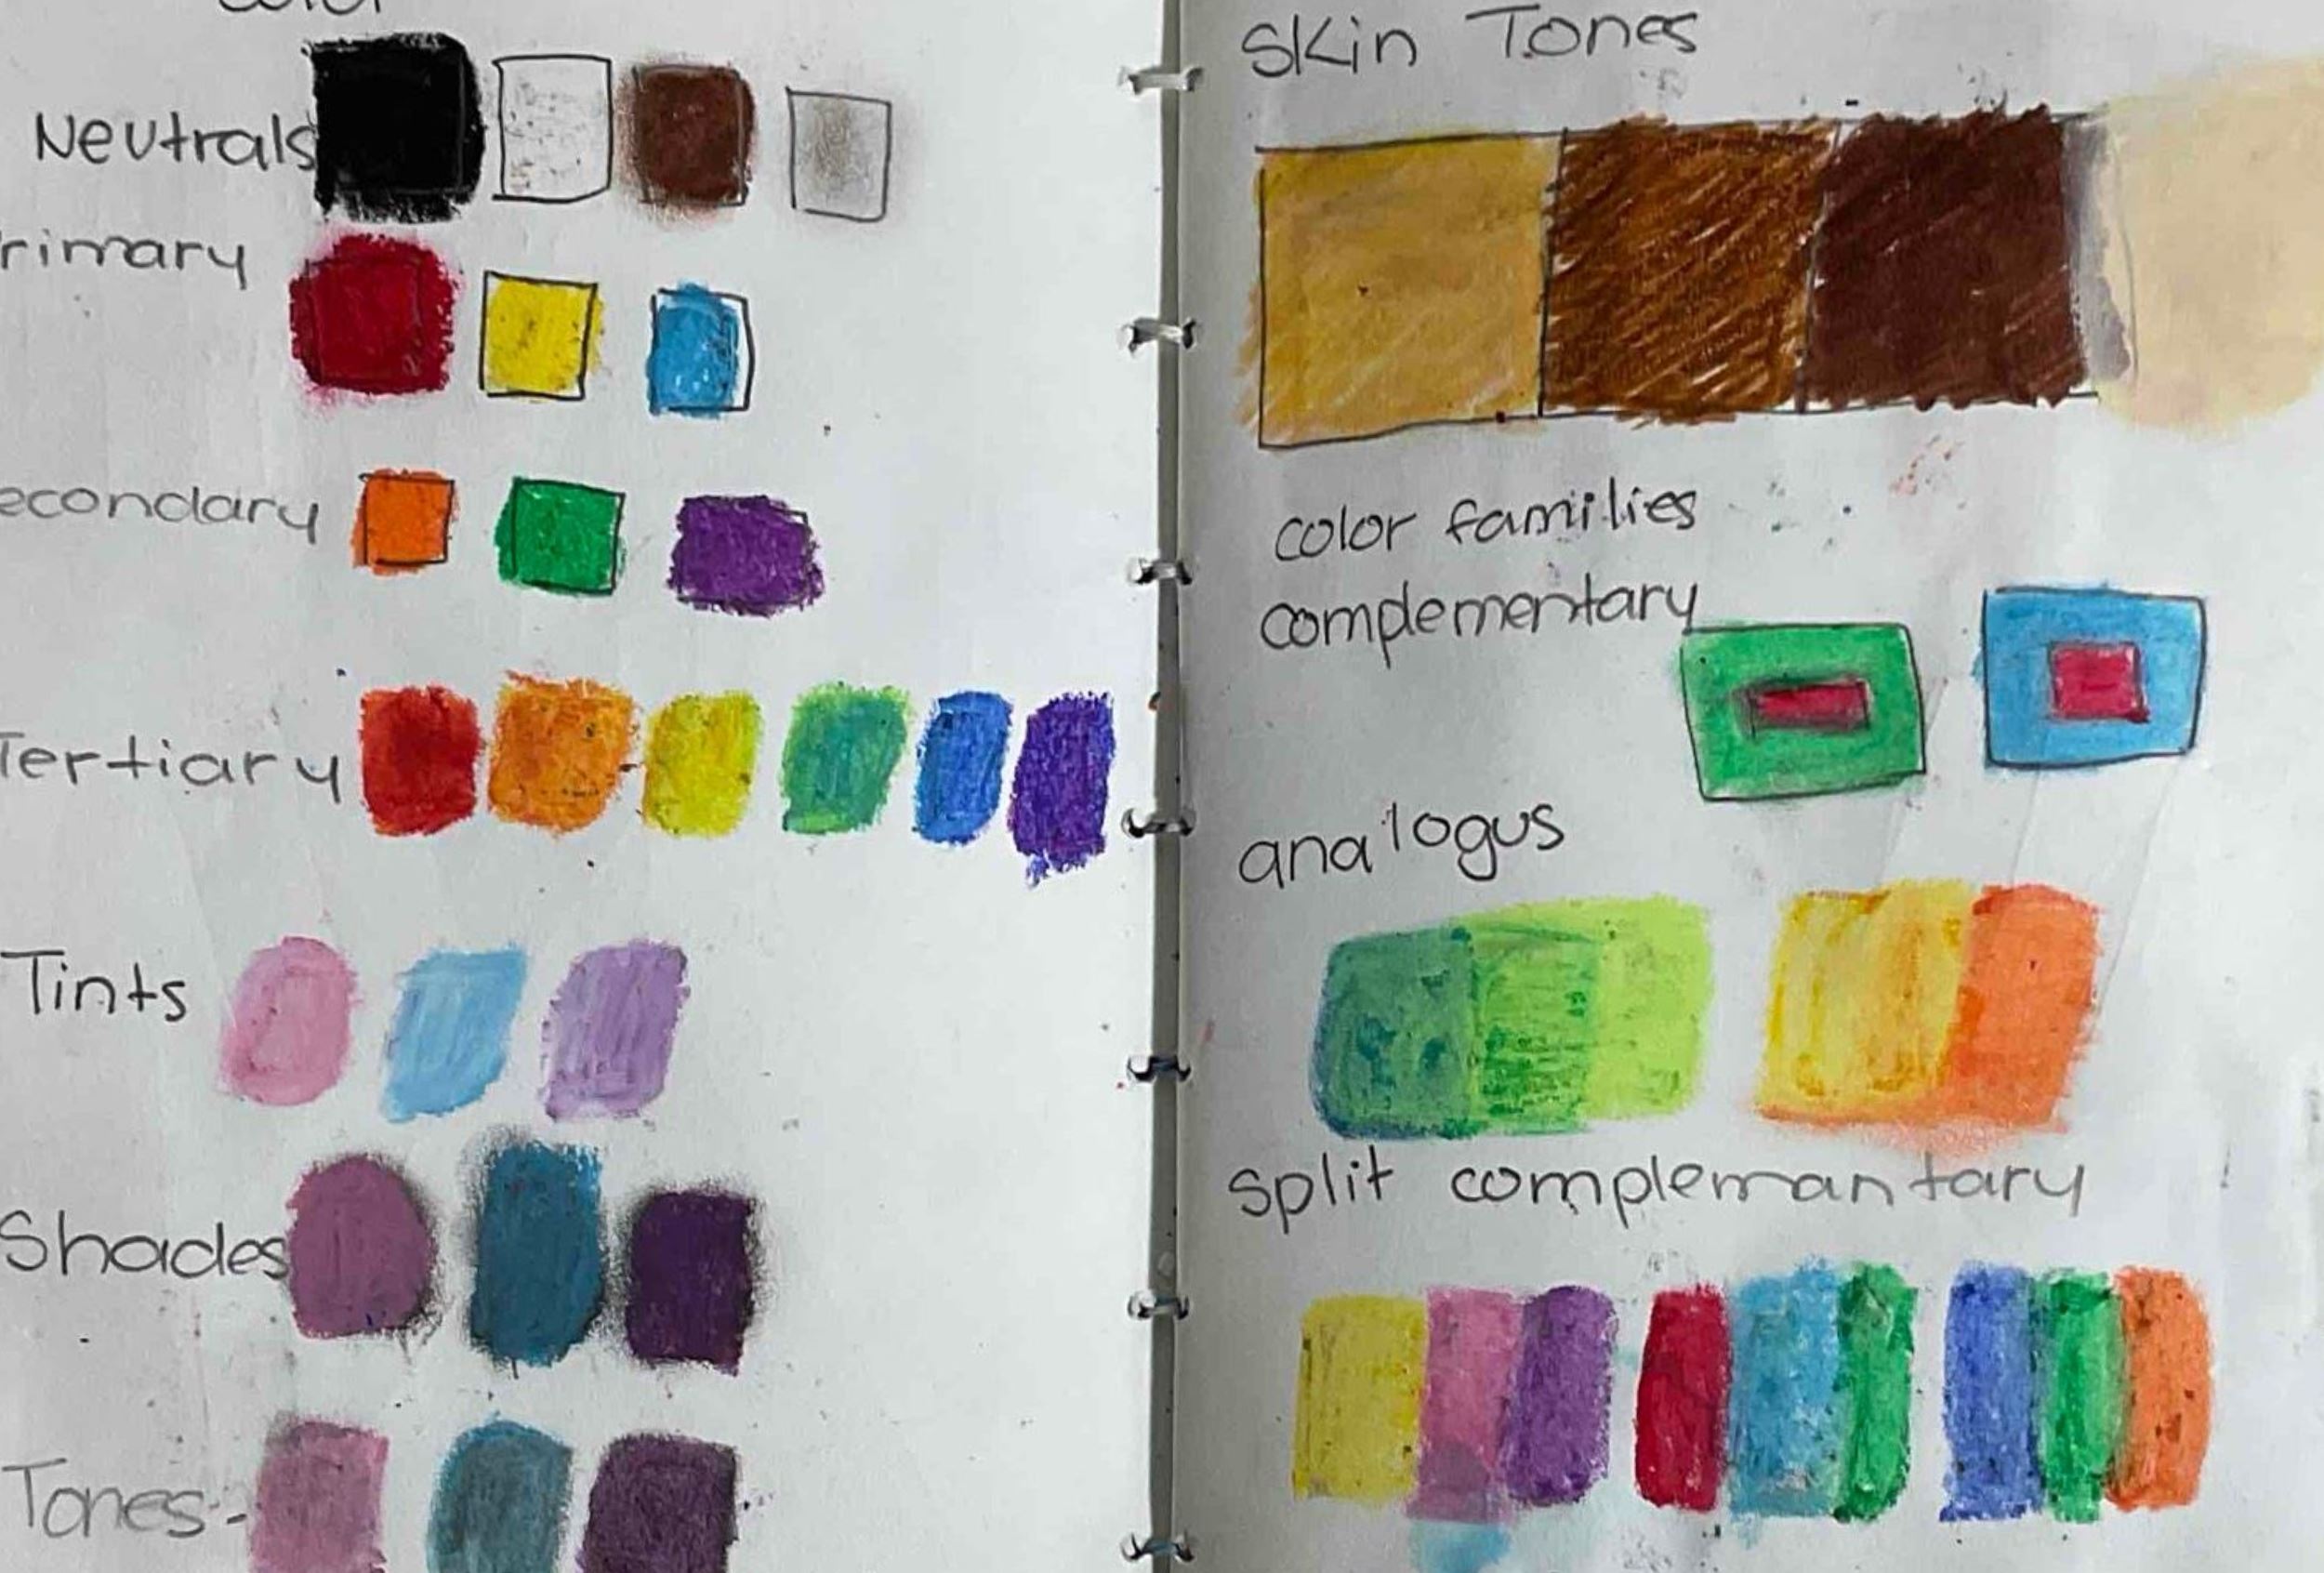 color
Neutrals
rimary
econdary
Tertiary
Tints
Shades
Tones-
Skin Tones
color families
complementary
analogus
split complemantary